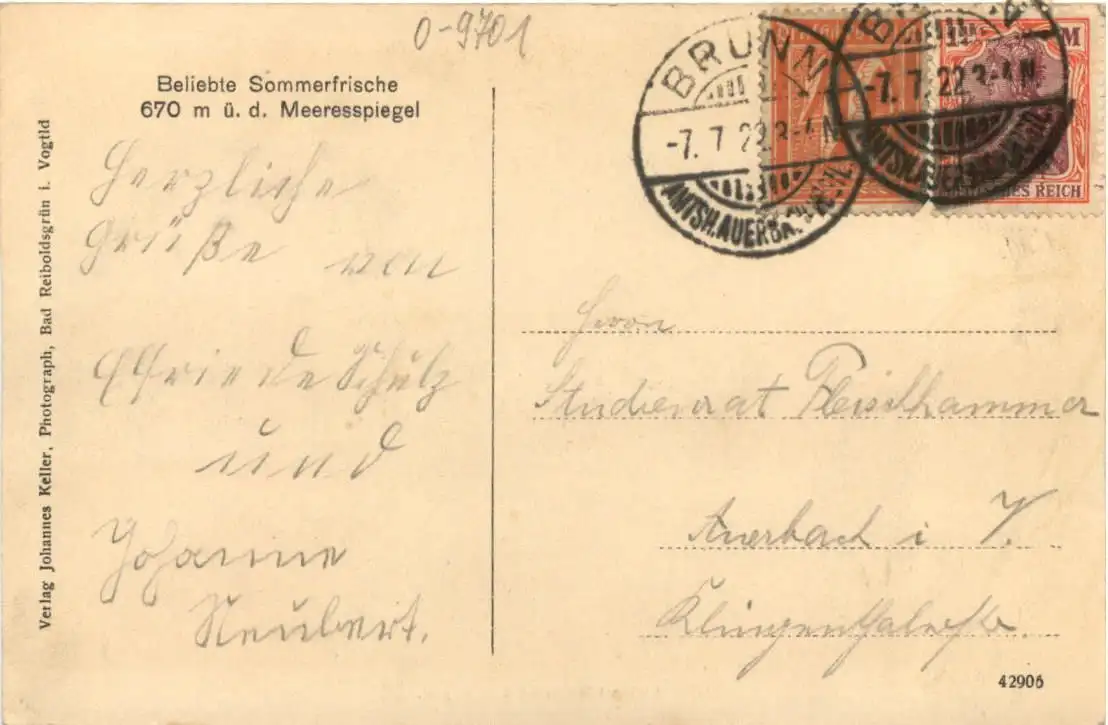 0-9701
Beliebte Sommerfrische
670 m ü. d. Meeresspiegel
Verlag Johannes Keller, Photograph, Bad Reiboldsgrün i. Vogtld
Herzliche
Grüße von
Elfriede Schulz
und
Johanne
Neubert.
BRUNN
-7.7.22.3-4N
AMTSH.AUERBACH
-7.7.22.3-4N
AMTSH.AUERBACH
M
DEUTSCHES REICH
Herrn
Studienrat Fleischhammer
Auerbach i V.
Klingenthalerstr.
42906